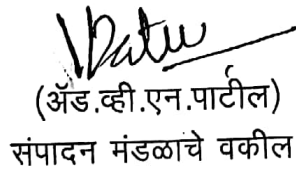 (ॲड.व्ही.एन.पाटील)
संपादन मंडळाचे वकील